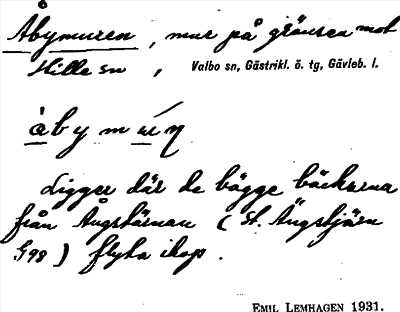 Åbymuren, mur på gränsen mot
Hille sn, Valbo sn, Gästrikl. ö. tg, Gävleb. l.
àbymúrη
Ligger där de bägge bäckarna
från Ångstärnan (St. Ängstjärn
G98) flyta ihop.
EMIL LEMHAGEN 1931.